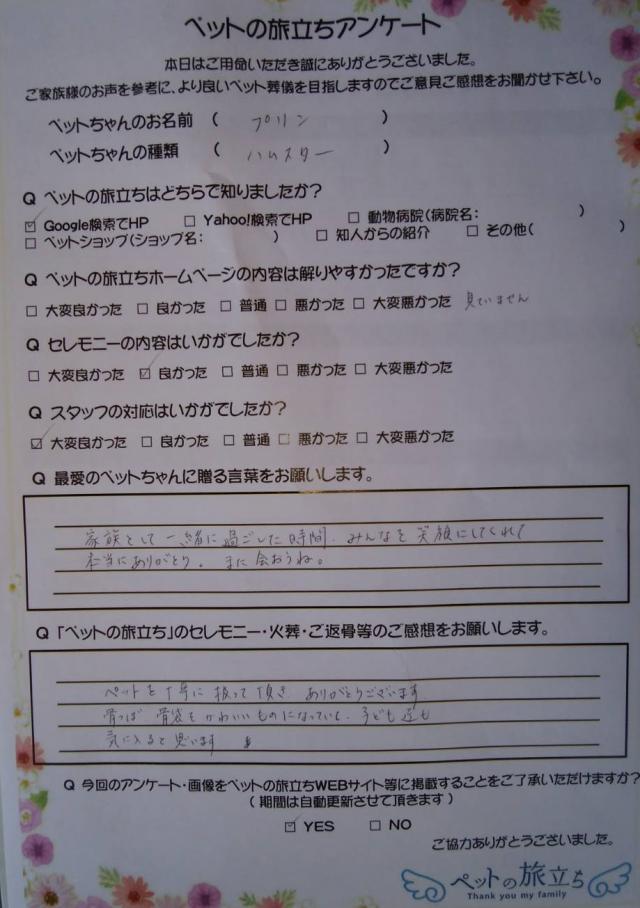 ペットの旅立ちアンケート
本日はご用命いただき誠にありがとうございました。
ご家族様のお声を参考に、より良いペット葬儀を目指しますのでご意見ご感想をお聞かせ下さい。
ペットちゃんのお名前 （ プリン ）
ペットちゃんの種類 （ ハムスター ）
Q ペットの旅立ちはどちらで知りましたか？
☑ Google検索でHP □ Yahoo!検索でHP □ 動物病院(病院名: )
□ ペットショップ(ショップ名: ) □ 知人からの紹介 □ その他( )
Q ペットの旅立ちホームページの内容は解りやすかったですか？
□ 大変良かった □ 良かった □ 普通 □ 悪かった □ 大変悪かった 見ていません
Q セレモニーの内容はいかがでしたか？
□ 大変良かった ☑ 良かった □ 普通 □ 悪かった □ 大変悪かった
Q スタッフの対応はいかがでしたか？
☑ 大変良かった □ 良かった □ 普通 □ 悪かった □ 大変悪かった
Q 最愛のペットちゃんに贈る言葉をお願いします。
家族として一緒に過ごした時間、みんなを笑顔にしてくれて
本当にありがとう。 また会おうね。
Q 「ペットの旅立ち」のセレモニー・火葬・ご返骨等のご感想をお願いします。
ペットを丁寧に扱って頂き ありがとうございます
骨つぼ 骨袋も かわいいものになっていて、子ども達も
気に入ると思います
Q 今回のアンケート・画像をペットの旅立ちWEBサイト等に掲載することをご了承いただけますか？
( 期間は自動更新させて頂きます )
☑ YES □ NO
ご協力ありがとうございました。
ペットの旅立ち
Thank you my family